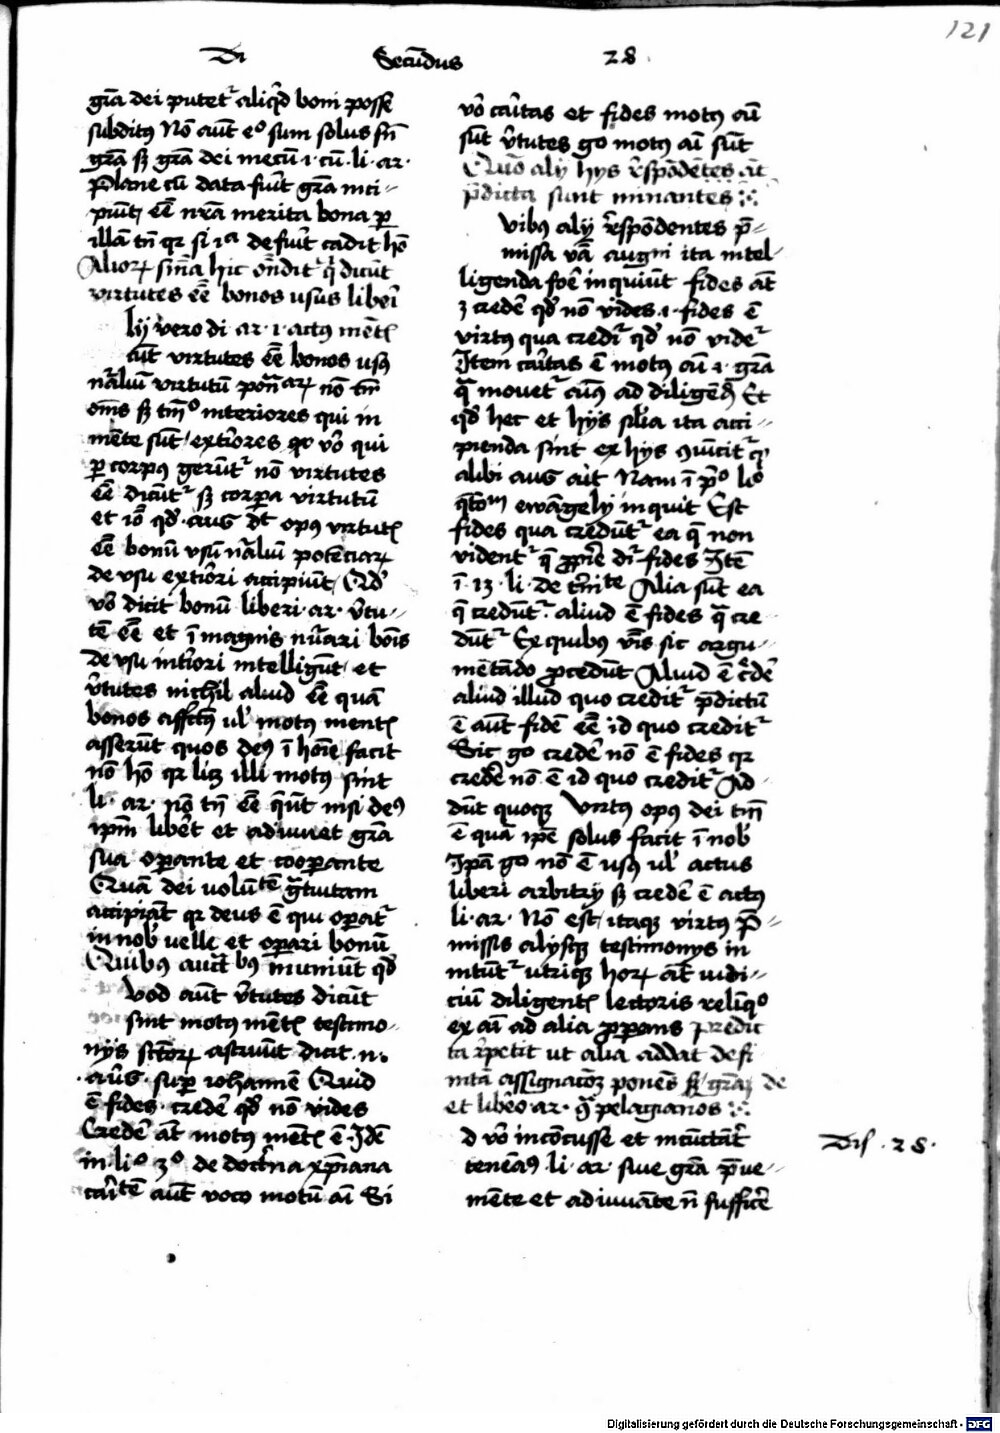 121
Di Secūdus 28
gr̄a dei putetᷣ aliqͥd boni posse
subditꝰ Nō aūt eᵒ sum solus sn̄
gr̄a sꝫ gr̄a dei mecū ·i· cū · li · ar ·
Plane cū data fuīt gr̄a inci-
piūt eē nr̄a merita bona ꝑ
illā tn̄ qꝛ si iᵃ defuīt cadit hō
Alioꝝ sn̄ia hic on̄ditᷣ qͥ dicūt
virtutes eē bonos usus liberi
Iꝫ vero di ar · i · actꝰ mēt
aūt virtutes eē bonos usꝰ
nᷓliū virtutū non tm̄
om̄s sꝫ tmᵒ interiores qui in
mēte sūt / exti᷒ores vᵒ qui
ꝑ corpꝰ gerūtᷣ nō virtutes
eē dicūtᷣ sꝫ corpꝑa virtutū
et iō qd᷒ · aug d᷒t opꝰ virtutꝭ
eē bonū usū nᷓliū potēciaꝝ
de usu exti᷒ori accipiūt / Qd᷒
vᵒ dicit bonū liberi · ar · v᷒tu-
tē eē et ī magnis nūari bōis
de usu int᷒iori intelligūt / et
v᷒tutes nichil aliud eē quā
bonos affctꝰ ul᷒ motꝰ mentꝭ
asserūt quos deꝰ ī hoīe facit
nō hō qꝛ licꝫ illi motꝰ sint
li · ar · nō tn̄ eē q̄ūt nisi deꝰ
ip̄m lib᷒et et adiuuet gr̄a
sua oꝑante et cooꝑante
Quā dei uolūtē gᷓtuitam
accipiāt qꝛ deus ē qui oꝑatᷣ
in nob᷒ uelle et oꝑari bonū
Quibus auct᷒bꝰ muniūt qd᷒
Vod aūt v᷒tutes dicūt
sint motꝰ mētꝭ testimo-
nijs sctōꝝ astruūt dicit · n ·
· aug · suꝑ iohannē Quid
ē fides · credē qd᷒ nō vides
Credē āt motꝰ mētꝭ ē · Idē
in · liᵒ 3ᵒ de doctr̄na xp̄iana
caritē aūt voco motū ai᷒ Si
vō cāitas et fides motꝰ āi
sūt v᷒tutes go motꝰ āi sūt
Quō alij hijs r̄spōdētes āt
p̄dicta sunt minantes
Vibꝰ alij r̄spōdentes p̄-
missa v᷒ba augni ita intel-
ligenda foꝛē inquiūt fides āt
ē credē qd᷒ nō vides ·i· fides ē
virtꝰ qua creditᷣ qd᷒ nō videtᷣ
Item cāitas ē motꝰ āi ·i· gr̄a
qᷓ mouetᷣ āīꝰ ad diligēdū Et
qd᷒ hec et hijs sil᷒ia ita acci-
pienda sint ex hijs ꝯuīcitᷣ qͥ
alibi aug ait Nam ī pᵒ liᵒ
ewāgelij inquit Est
fides qua credūtᷣ ea q̄ non
vidētᷣ q̄ ꝓprie dr̄ fides Itē
ī · 13 · li · de tr̄nite Alia sūt ea
q̄ credūtᷣ · aliud ē fides qᷓ cre-
dūtᷣ Ex quibus sic argu-
mētādo ꝓcedūt Aliud ē c᷒dē
aliud illud quo creditᷣ p̄dictū
ē aūt fidē eē id quo creditᷣ
Sic go credē nō ē fides qꝛ
credē nō ē id quo creditᷣ Ad-
dūt quoqꝫ Virtꝰ opꝰ dei tm̄
ē quā ip̄e solus facit ī nob᷒
Ip̄a go nō ē usꝰ ul᷒ actus
liberi arbitrij sꝫ credē ē actꝰ
li · ar · Nō est itaqꝫ virtꝰ p̄-
missis alijsqꝫ testimonijs in-
nitūtᷣ utriqꝫ hoꝝ āt iudi-
ciū diligentꝭ lectoris relinqᵒ
ex āi ad alia ꝓꝑans Predic-
ta r̄petit ut alia addat defi-
nitā assignacōꝫ ponēs sꝫ gr̄aꝫ de
et libe᷒o ar · pelagianos
d vᵒ incōcusse et īcūctāt᷒
teneāꝰ li · ar · siue gr̄a p̄ue-
niēte et adiuuāte n̄ suffic᷒e
Dis · 28 ·
Digitalisierung gefördert durch die Deutsche Forschungsgemeinschaft - DFG